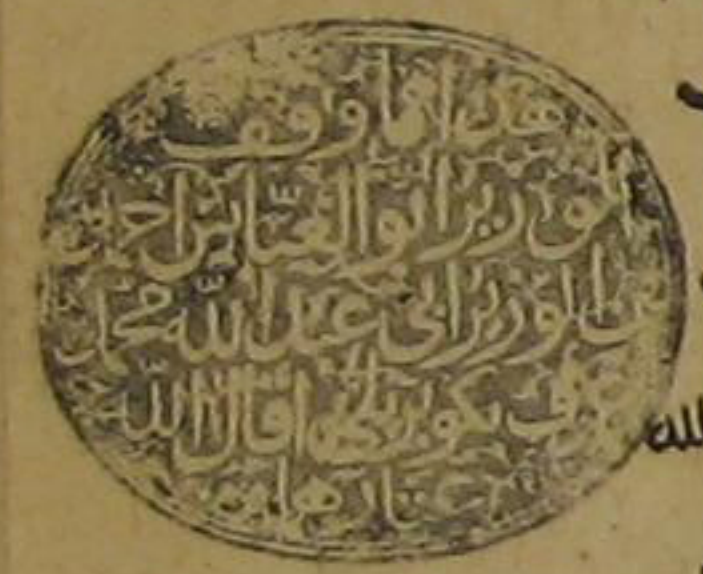 هذا مما وقف
الوزير ابو العباس احمد
بن الوزير ابي عبد الله محمد
عرف بكوبريلي اقال الله
عثارهما
الله